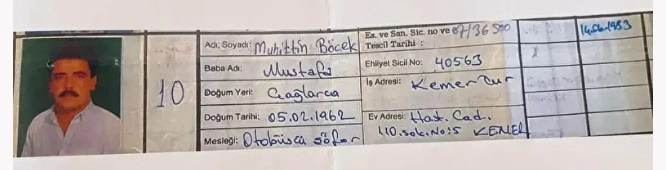 10
Adı, Soyadı: Muhittin Böcek
Baba Adı: Mustafa
Doğum Yeri: Çağlarca
Doğum Tarihi: 05.02.1962
Mesleği: Otobüscü şöför
Es. ve San. Sic. no ve 07/36500
Tescil Tarihi :
Ehliyet Sicil No: 40563
İş Adresi: Kemer Tur
Ev Adresi: Hast. Cad.
110.sok.No:5 KEMER
1983